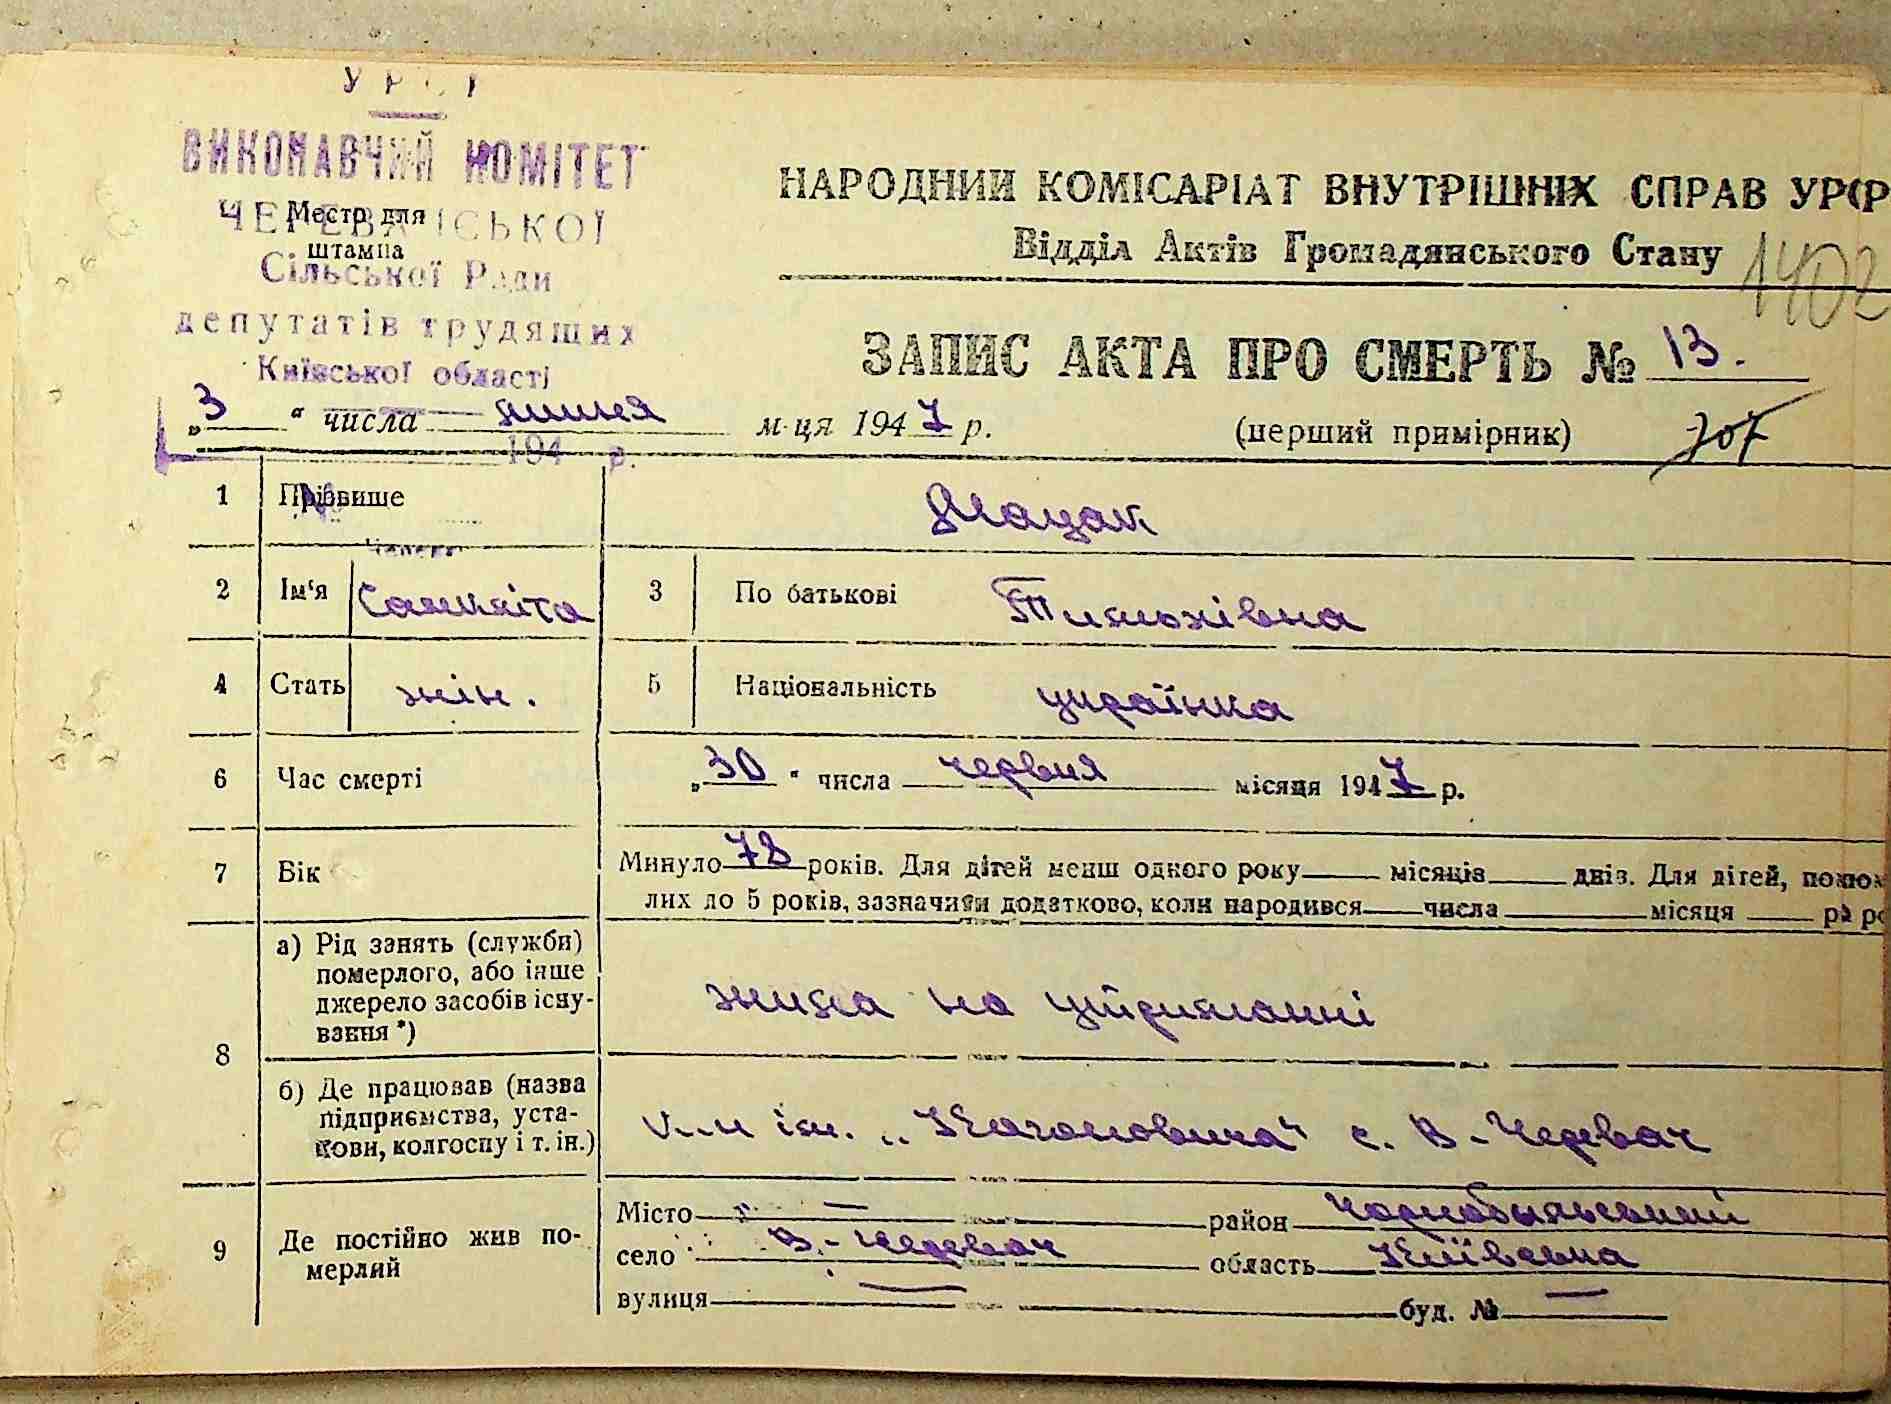 ВИКОНАВЧИЙ КОМІТЕТ
Место для
штампа
Сільської Ради
депутатів трудящих
Київської області
НАРОДНИЙ КОМІСАРІАТ ВНУТРІШНІХ СПРАВ УРСР
Відділ Актів Громадянського Стану
1402
ЗАПИС АКТА ПРО СМЕРТЬ № 13.
„3“ числа липня м-ця 1947 р.
(перший примірник) 707
194 р.
1 Прізвище Мацак
2 Ім‘я 3 По батькові
4 Стать жін. 5 Національність українка
6 Час смерті „30“ числа червня місяця 1947 р.
7 Вік Минуло 78 років. Для дітей менш одного року місяців днів. Для дітей,
лих до 5 років, зазначити додатково, коли народився числа місяця
8 а) Рід занять (служби)
померлого, або інше
джерело засобів існу-
вання *)
жила на утриманні
б) Де працював (назва
підприємства, уста-
нови, колгоспу і т. ін.)
ім. „Кагановича“ с. В-Черевач
9 Де постійно жив по-
мерлий
Місто — район Чорнобильський
село В.-Черевач область Київська
вулиця — буд. № —